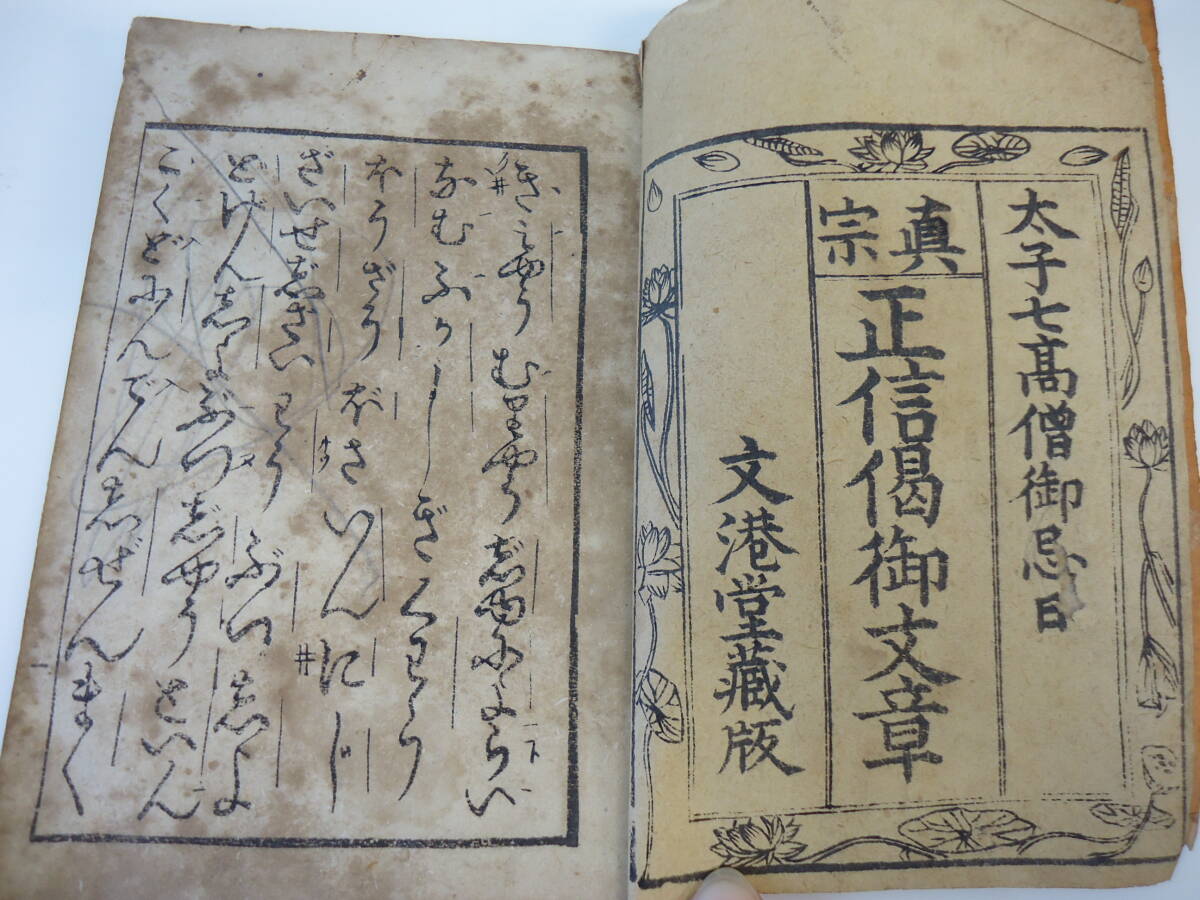 太子七高僧御忌日
眞宗
正信偈御文章
文港堂藏版
きみやうむりやうじゆによらい
なむふかしぎくわう
ほうざうぼさいんにじ
ざいせじざいわうぶつしよ
どけんしよぶつじやうどいん
こくどにんでんしぜんまく